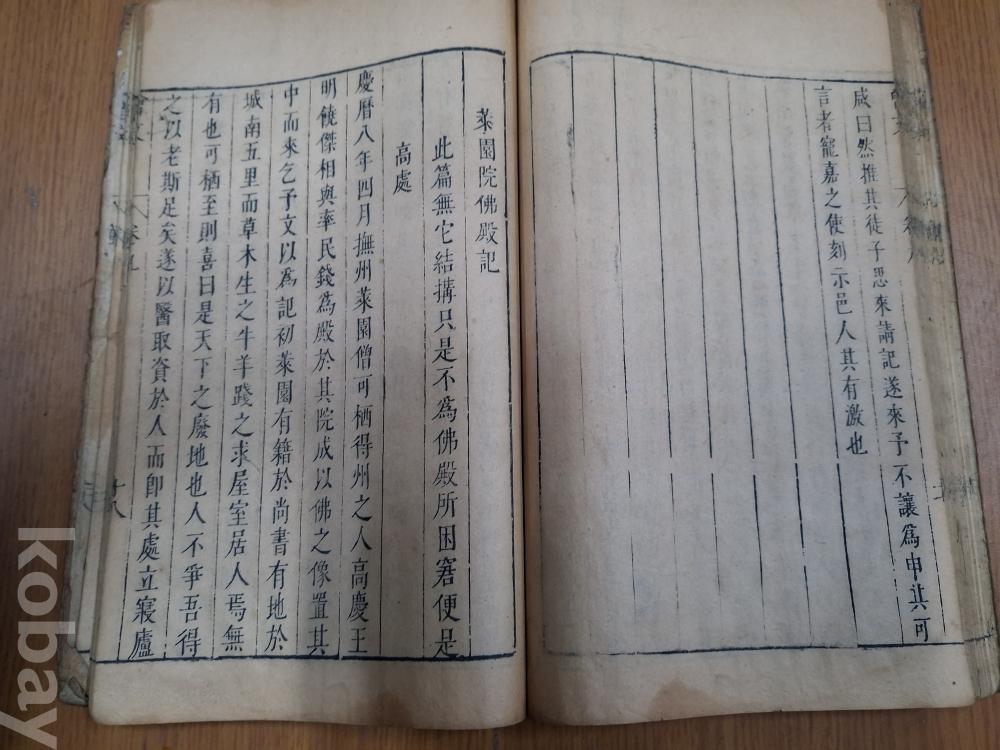 咸曰然推其徒子思來請記遂來予不讓爲申其可
言者寵嘉之使刻示邑人其有激也
菜園院佛殿記
此篇無它結搆只是不爲佛殿所困窘便是
高處
慶曆八年四月撫州菜園僧可栖得州之人高慶王
明饒傑相與率民錢爲殿於其院成以佛之像置其
中而來乞予文以爲記初菜園有籍於尚書有地於
城南五里而草木生之牛羊踐之求屋室居人焉無
有也可栖至則喜曰是天下之廢地也人不爭吾得
之以老斯足矣遂以醫取資於人而卽其處立寢廬
十八
kobay